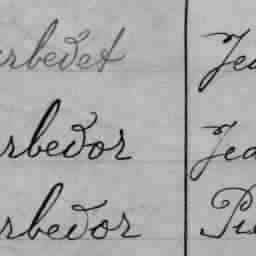 rbedet Jea
rbedor Jea
rbedor Pie